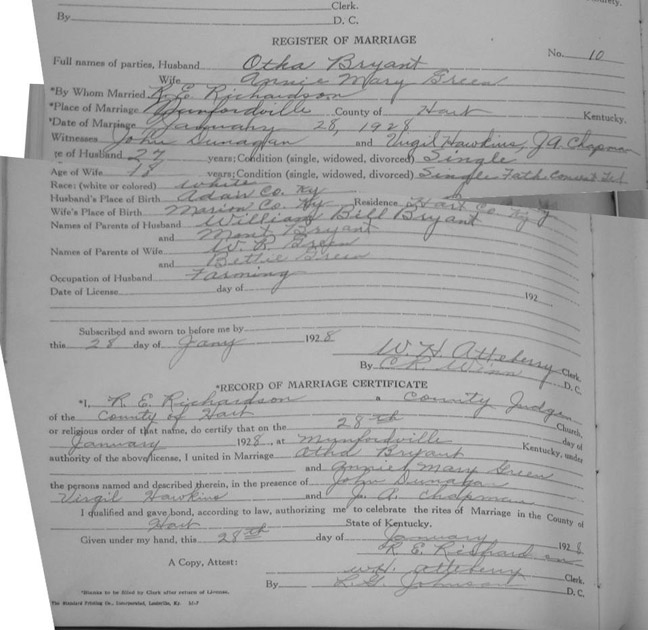 Clerk.
By D. C.
REGISTER OF MARRIAGE
No. 10
Full names of parties, Husband Otha Bryant
Wife Annie Mary Green
*By Whom Married R. E. Richardson
*Place of Marriage Munfordville County of Hart Kentucky.
*Date of Marriage January 28, 1928
Witnesses John Dunagan and Virgil Hawkins, J. A. Chapman
ge of Husband 27 years; Condition (single, widowed, divorced) Single
Age of Wife 18 years; Condition (single, widowed, divorced) Single Fath
Race: (white or colored) white
Husband's Place of Birth Adair Co. Ky Residence Hart Co. Ky
Wife's Place of Birth Marion Co. Ky
Names of Parents of Husband William Bill Bryant
and Mont Bryant
Names of Parents of Wife W. R. Green
and Bettie Green
Occupation of Husband Farming
Date of License day of 192
Subscribed and sworn to before me by
this 28 day of Jany 1928
W. H. Atteberry Clerk.
By C. R. Winn D. C.
*RECORD OF MARRIAGE CERTIFICATE
*I, R. E. Richardson a County Judge
of the County of Hart Church,
or religious order of that name, do certify that on the 28th day of
January 1928, at Munfordville Kentucky, under
authority of the above license, I united in Marriage Atha Bryant
and Annie Mary Green
the persons named and described therein, in the presence of John Dunagan
Virgil Hawkins and J. A. Chapman
I qualified and gave bond, according to law, authorizing me to celebrate the rites of Marriage in the County of
Hart State of Kentucky.
Given under my hand, this 28th day of January 1928
R. E. Richardson
A Copy, Attest: W. H. Atteberry Clerk.
By L. G. Johnson D. C.
*Blanks to be filled by Clerk after return of License.
The Standard Printing Co., Incorporated, Louisville, Ky.